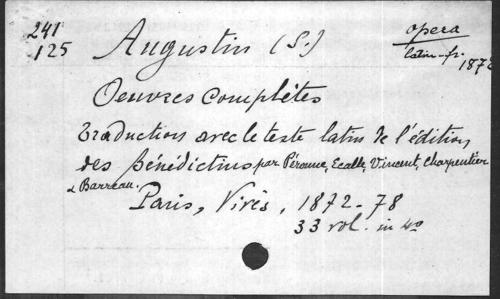 241
125
Augustin (S.)
opera
latin-fr.
1872
Oeuvres complètes
traduction avec le texte latin de l'édition
des Bénédictins par Péronne, Ecalle, Vincent, Charpentier
& Barreau.
Paris, Vivès, 1872-78
33 vol. in 4o